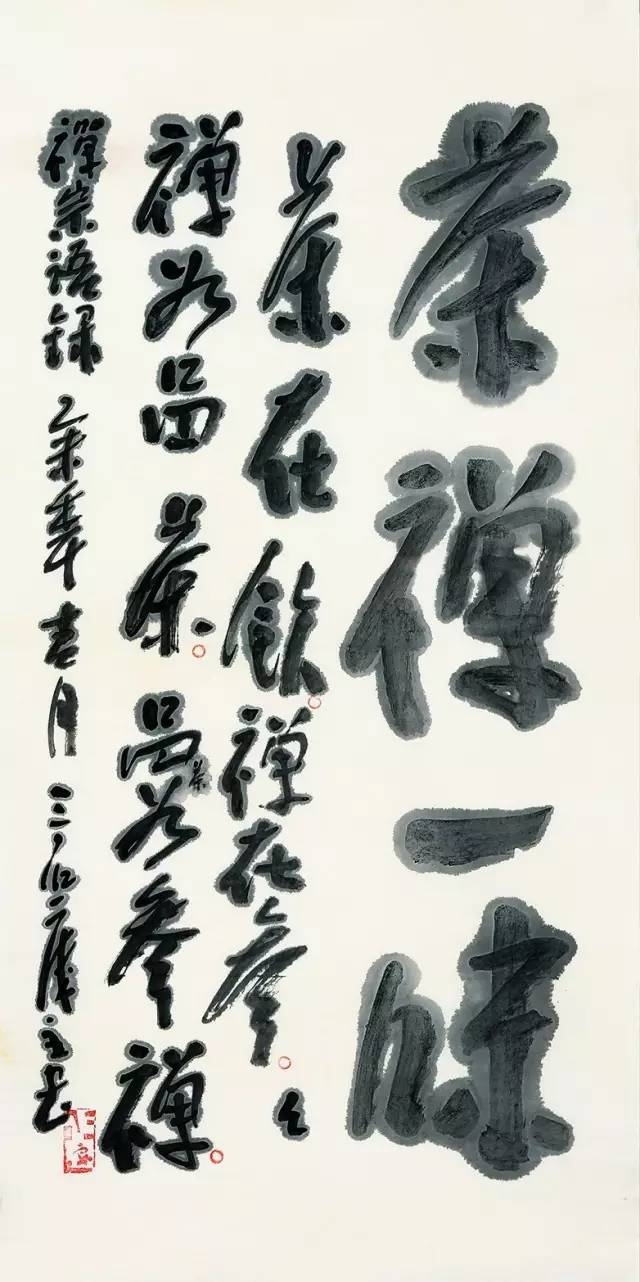 茶禪一味
茶在飲。禪在參。々
禪如品茶。品茶如參禪。
禪宗語錄 乙未年春月